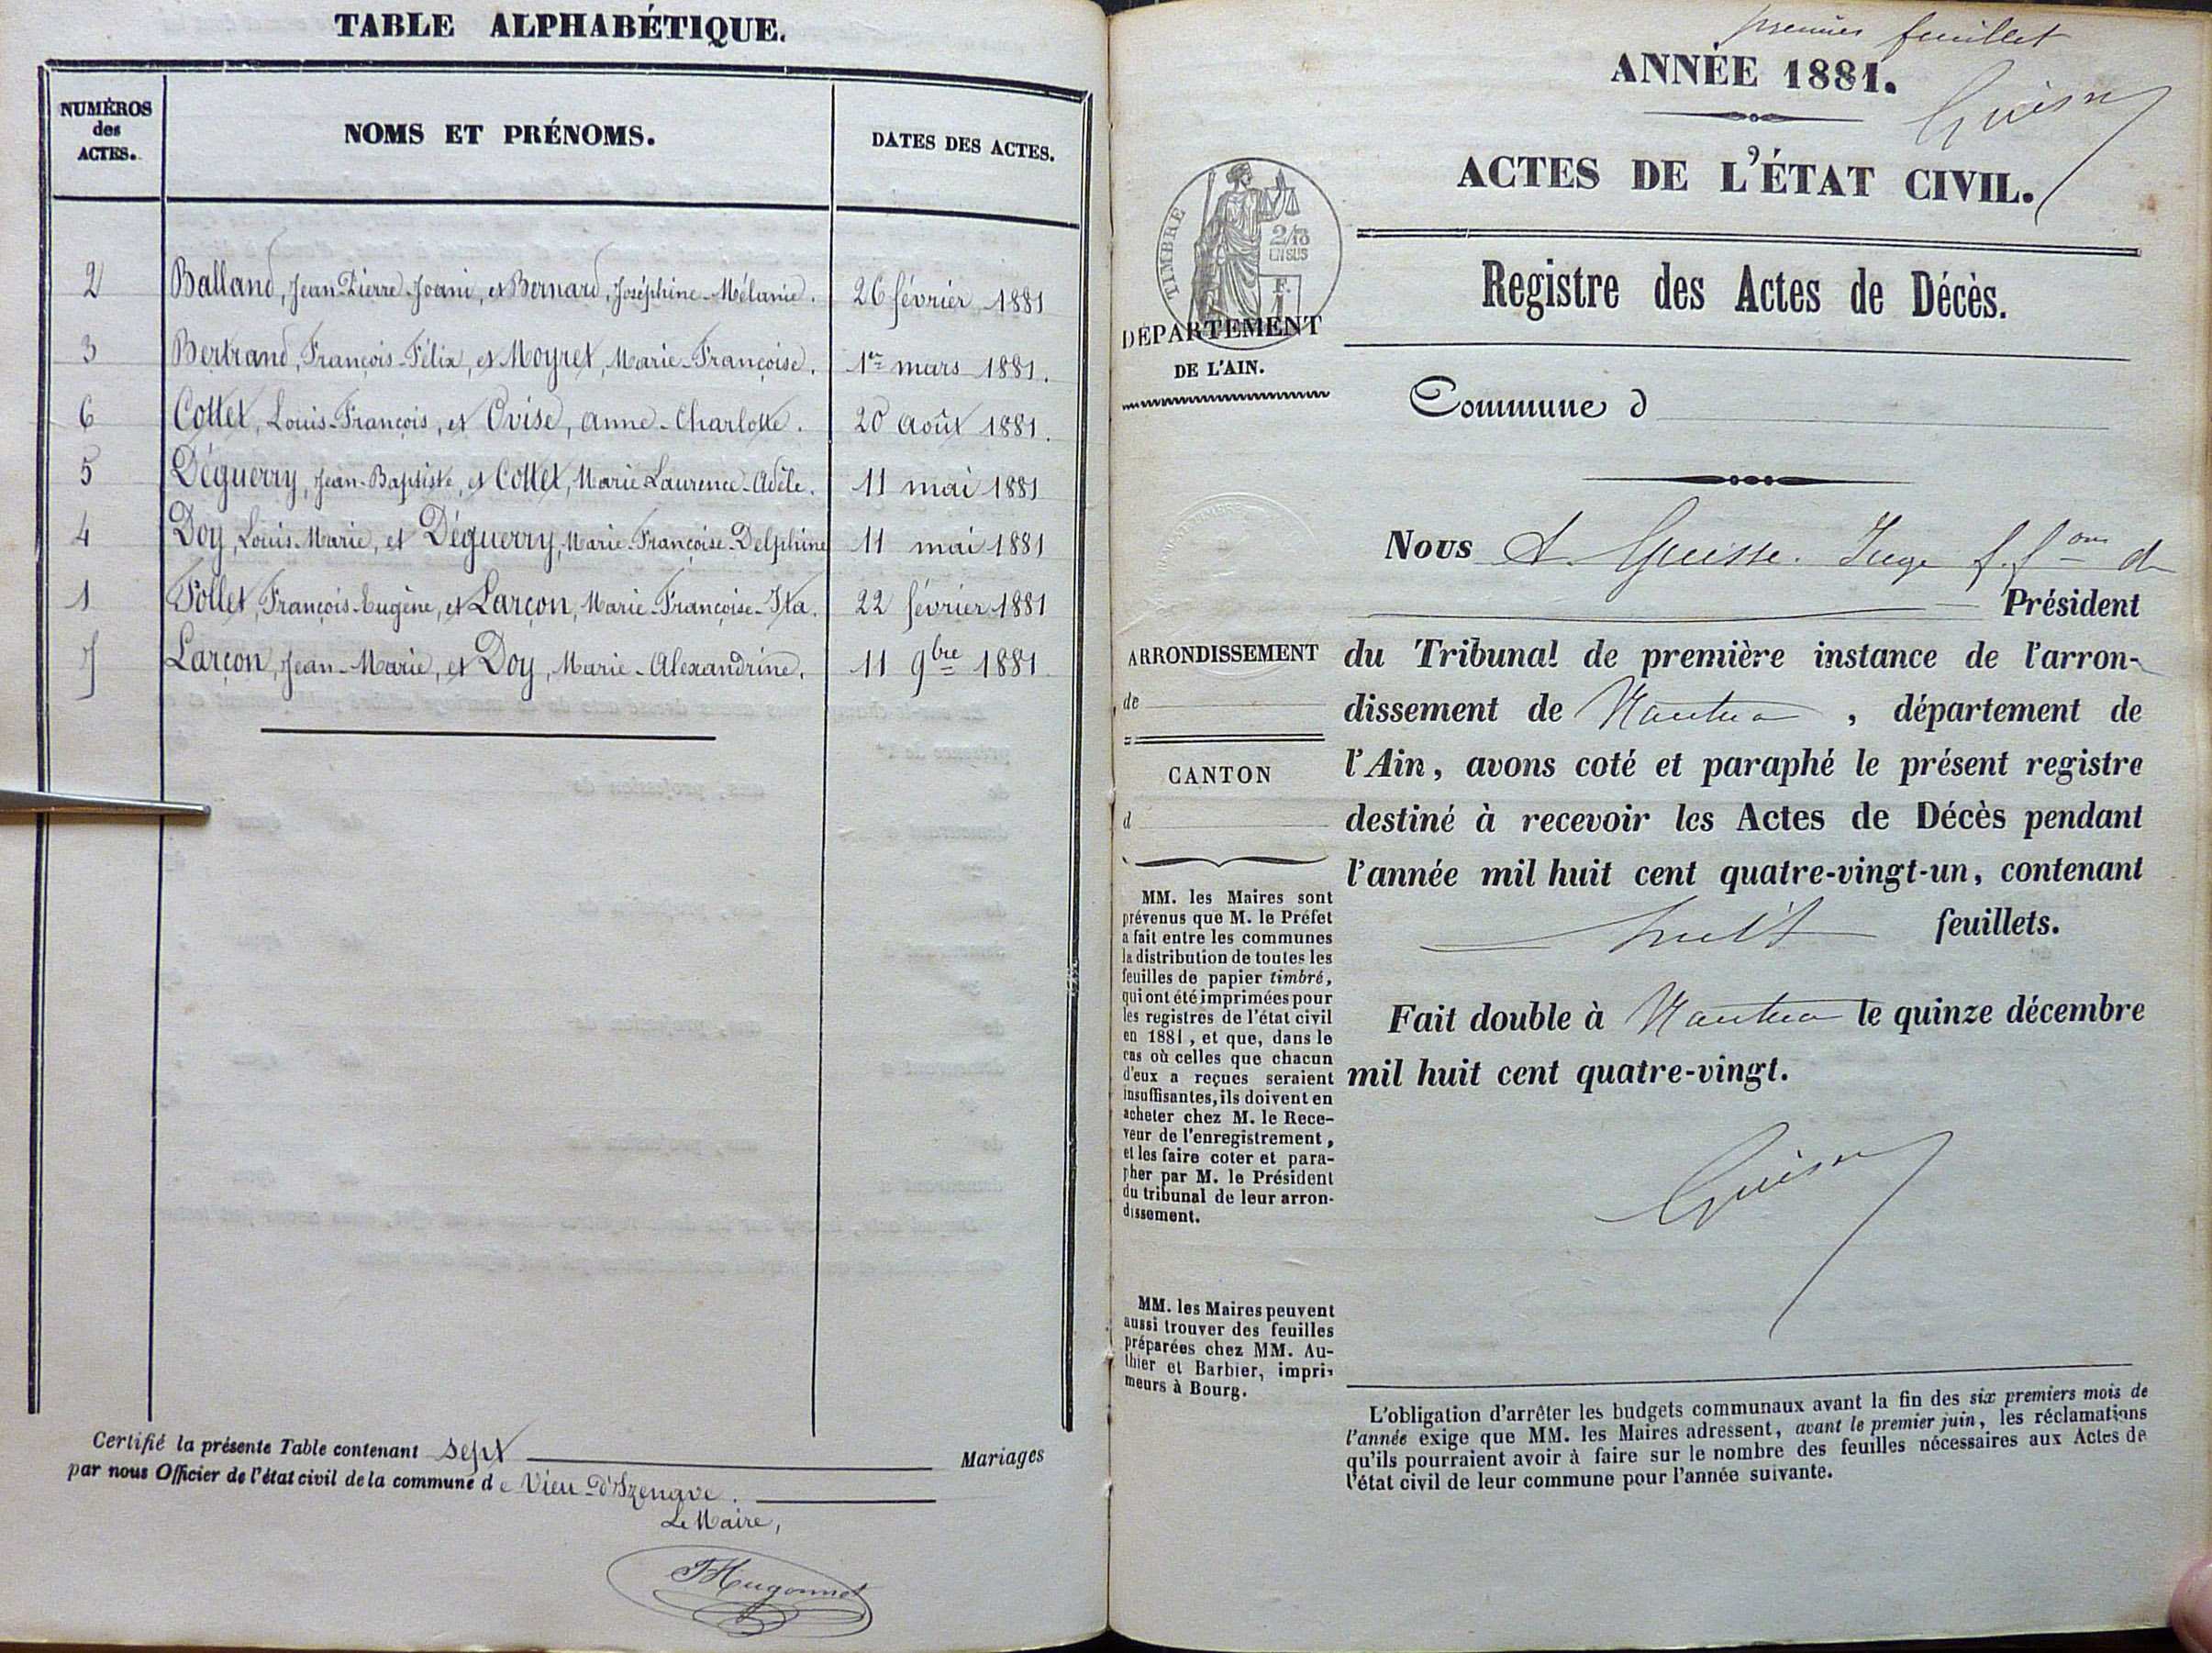 TABLE ALPHABÉTIQUE.
NUMÉROS
des
ACTES.
NOMS ET PRÉNOMS.
DATES DES ACTES.
2 Balland, Jean-Pierre-Joani, et Bernard, Joséphine-Mélanie. 26 février 1881
3 Bertrand, François-Félix, et Moyret, Marie-Françoise. 1er mars 1881.
6 Cottet, Louis-François, et Ovise, Anne-Charlotte. 20 Août 1881.
5 Déguerry, Jean-Baptiste, et Cottet, Marie Laurence-Adèle. 11 mai 1881
4 Doy, Louis-Marie, et Déguerry, Marie-Françoise-Delphine 11 mai 1881
1 Follet, François-Eugène, et Larçon, Marie-Françoise-Ita. 22 février 1881
7 Larçon, Jean-Marie, et Doy, Marie-Alexandrine. 11 9bre 1881
Certifié la présente Table contenant sept Mariages
par nous Officier de l'état civil de la commune de Vieu-D'Izenave.
Le Maire,
Hugonnet
premier feuillet
ANNÉE 1881.
ACTES DE L'ÉTAT CIVIL.
TIMBRE
2/10
EN SUS
F.
1
Registre des Actes de Décès.
DÉPARTEMENT
DE L'AIN.
Commune d
Nous A. Guisse. Juge f. fons de
Président
ARRONDISSEMENT
de
CANTON
d
du Tribunal de première instance de l'arron-
dissement de Nantua, département de
l'Ain, avons coté et paraphé le présent registre
destiné à recevoir les Actes de Décès pendant
l'année mil huit cent quatre-vingt-un, contenant
huit feuillets.
Fait double à Nantua le quinze décembre
mil huit cent quatre-vingt.
MM. les Maires sont
prévenus que M. le Préfet
a fait entre les communes
la distribution de toutes les
feuilles de papier timbré,
qui ont été imprimées pour
les registres de l'état civil
en 1881, et que, dans le
cas où celles que chacun
d'eux a reçues seraient
insuffisantes, ils doivent en
acheter chez M. le Rece-
veur de l'enregistrement,
et les faire coter et para-
pher par M. le Président
du tribunal de leur arron-
dissement.
MM. les Maires peuvent
aussi trouver des feuilles
préparées chez MM. Au-
thier et Barbier, impri-
meurs à Bourg.
L'obligation d'arrêter les budgets communaux avant la fin des six premiers mois de
l'année exige que MM. les Maires adressent, avant le premier juin, les réclamations
qu'ils pourraient avoir à faire sur le nombre des feuilles nécessaires aux Actes de
l'état civil de leur commune pour l'année suivante.